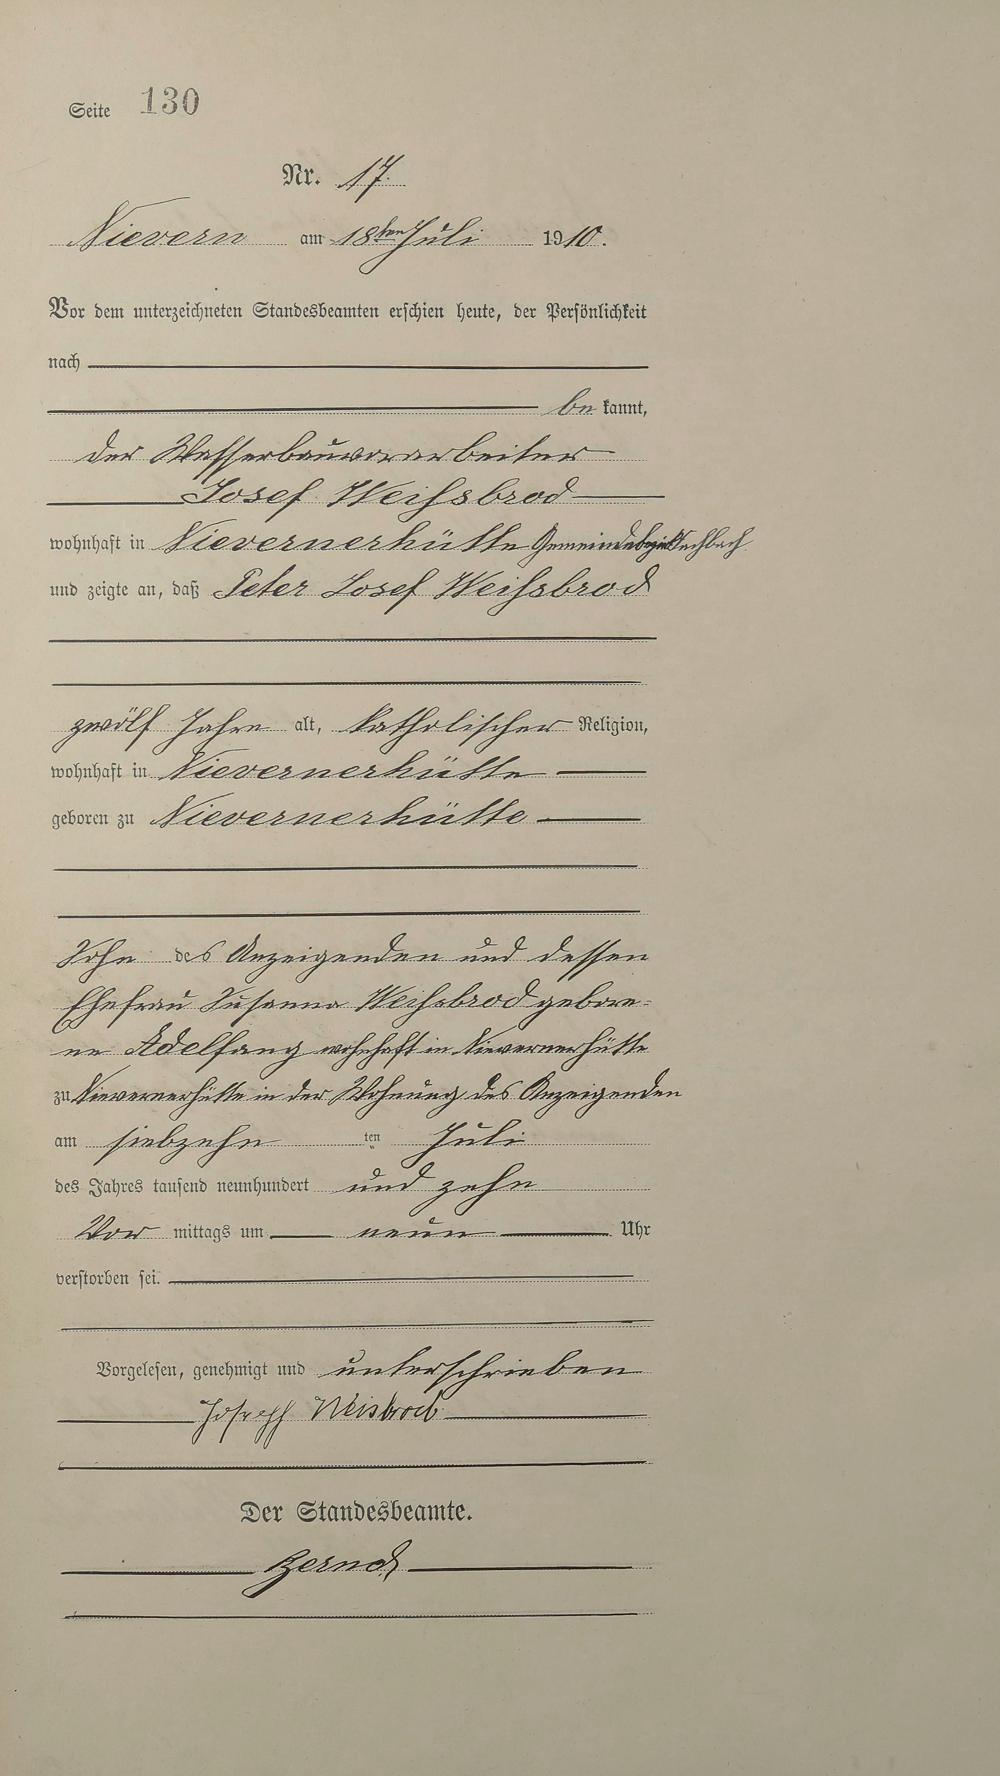 Seite 130
Nr. 17.
Nievern am 18ten Juli 1910.
Vor dem unterzeichneten Standesbeamten erschien heute, der Persönlichkeit
nach
be kannt,
der Wasserbauvorarbeiter
Josef Weifsbrod
wohnhaft in Nievernerhütte Gemeindebezirk Fachbach
und zeigte an, daß Peter Josef Weifsbrod
zwölf Jahre alt, katholischer Religion,
wohnhaft in Nievernerhütte
geboren zu Nievernerhütte
Sohn des Anzeigenden und dessen
Ehefrau Susanna Weifsbrod gebore-
ne Adelfang wohnhaft in Nievernerhütte
zu Nievernerhütte in der Wohnung des Anzeigenden
am siebzehn ten Juli
des Jahres tausend neunhundert und zehn
Vor mittags um neun Uhr
verstorben sei.
Vorgelesen, genehmigt und unterschrieben
Joseph Weisbrod
Der Standesbeamte.
Bernd